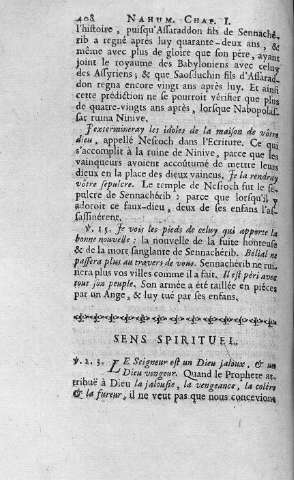 408 NAHUM. CHAP. I.
l'histoire, puisqu'Assaraddon fils de Sennaché-
rib a regné aprés luy quarante-deux ans, &
même avec plus de gloire que son pére, ayant
joint le royaume des Babyloniens avec celuy
des Assyriens; & que Saosduchin fils d'Assarad-
don regna encore vingt ans aprés luy. Et ainsi
cette prédiction ne se pourroit vérifier que plus
de quatre-vingts ans aprés, lorsque Nabopolas-
sar ruina Ninive.
J'extermineray les idoles de la maison de vôtre
dieu, appellé Nesroch dans l'Ecriture. Ce qui
s'accomplit à la ruine de Ninive, parce que les
vainqueurs avoient accoûtumé de mettre leurs
dieux en la place des dieux vaincus. Je la rendray
vôtre sepulcre. Le temple de Nesroch fut le se-
pulcre de Sennachérib: parce que lorsqu'il y
adoroit ce faux-dieu, deux de ses enfans l'as-
sassinérent.
℣. 15. Je vois les pieds de celuy qui apporte la
bonne nouvelle: la nouvelle de la fuite honteuse
& de la mort sanglante de Sennachérib. Bélial ne
passera plus au travers de vous. Sennachérib ne rui-
nera plus vos villes comme il a fait. Il est péri avec
tout son peuple. Son armée a été taillée en piéces
par un Ange, & luy tué par ses enfans.
SENS SPIRITUEL.
℣. 2. 3. LE Seigneur est un Dieu jaloux, & un
Dieu vengeur. Quand le Prophete at-
tribuë à Dieu la jalousie, la vengeance, la colére
& la fureur, il ne veut pas que nous concevions